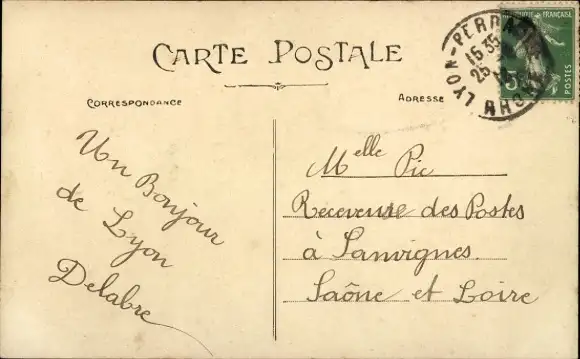 CARTE POSTALE
CORRESPONDANCE
ADRESSE
Un Bonjour
de Lyon
Delabre
Melle Pic
Receveuse des Postes
à Sanvignes
Saône et Loire
LYON-PERRACHE
15 35
25
RHONE
FRANÇAISE
POSTES
5